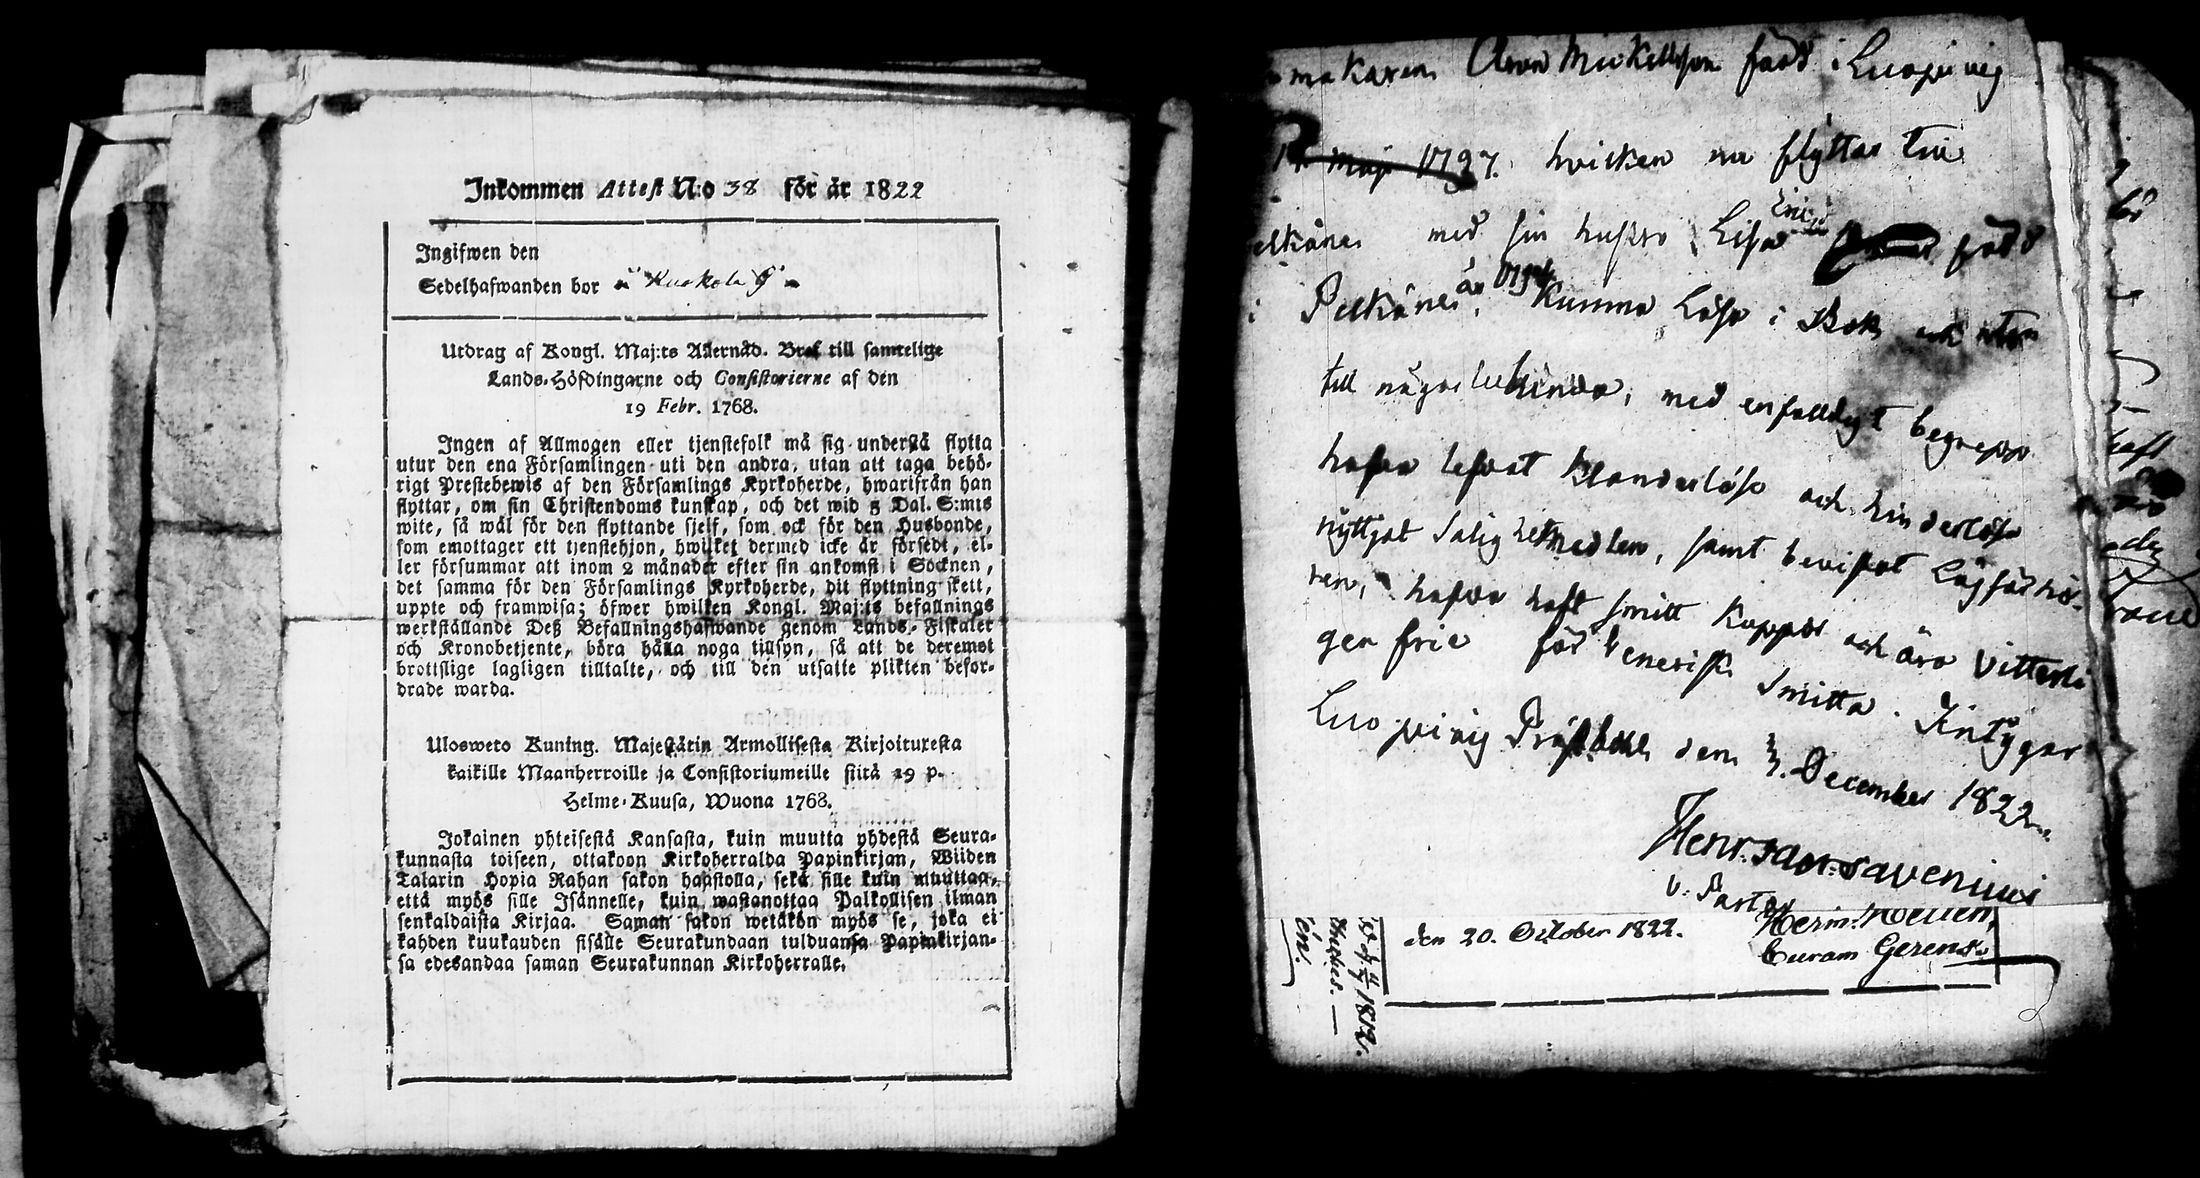 Inkommen Attest N:o 38 för år 1822
Ingifwen den
Sedelhafwanden bor
Utdrag af Kongl. Maj:ts Allernåd. Bref till samtelige
Lands-Höfdingarne och Consistorierne af den
19 Febr. 1768.
Ingen af Allmogen eller tjenstefolk må sig understå flytta
utur den ena Församlingen uti den andra, utan att taga behö-
rigt Prestebewis af den Församlings Kyrkoherde, hwarifrån han
flyttar, om sin Christendoms kunskap, och det wid 5 Dal. S:mts
wite, så wäl för den flyttande sjelf, som ock för den Husbonde,
som emottager ett tjenstehjon, hwilket dermed icke är försedt, el-
ler försummar att inom 2 månader efter sin ankomst i Socknen,
det samma för den Församlings Kyrkoherde, dit flyttning skett,
uppte och framwisa; öfwer hwilken Kongl. Maj:ts befallnings
werkställande Deß Befallningshafwande genom Lands-Fiskaler
och Kronobetjente, böra hålla noga tillsyn, så att de deremot
brottslige lagligen tilltalte, och till den utsatte plikten befor-
drade warda.
Ulosweto Kuning. Majestätin Armollisesta Kirjoituresta
kaikille Maanherroille ja Consistoriumeille siitä 19 p.
Helme-Kuusa, Wuona 1768.
Jokainen yhteisestä Kansasta, kuin muutta yhdestä Seura-
kunnasta toiseen, ottakoon Kirkoherralda Papinkirjan, Wiiden
Talarin Hopia Rahan sakon haastolla, sekä sille kuin muuttaa,
että myös sille Isännelle, kuin wastanottaa Palkollisen ilman
senkaldaista Kirjaa. Saman sakon wetäkön myös se, joka ei
kahden kuukauden sisälle Seurakundaan tulduansa Papinkirjan-
sa edesandaa saman Seurakunnan Kirkoherralle.
makaren Aron Mickelsson född i Luopiois
Maji 1797. hvilken nu flyttar till
elkäne med sin hustro Lisa född
i Pelkäne, Kunna Läsa i Bok och utan
till några stycken, med enfalldigt begrepp
hafva lefvat Klanderlöse och hinderlöse
nyttjat Salighetmedlen, samt bevistat Läsförhö-
ren, hafva haft smitt Koppor och äro vitterli
gen frie för Venerisk Smitta. Intygar
Luopiois Präst den December 1822.
Henr. Joh. Savenius
v. Pastor
den 20. October 1822.
Herm. Hellén
Curam Gerens.
1812.